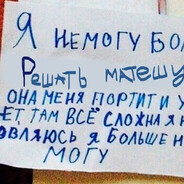 Я НЕМОГУ БОЛ
РЕШАТЬ МАТЕШУ
ОНА МЕНЯ ПОРТИТ И У
ЕТ, ТАМ ВСЁ СЛОЖНА Я Н
ОВЛЯЮСЬ Я БОЛЬШЕ Н
МОГУ